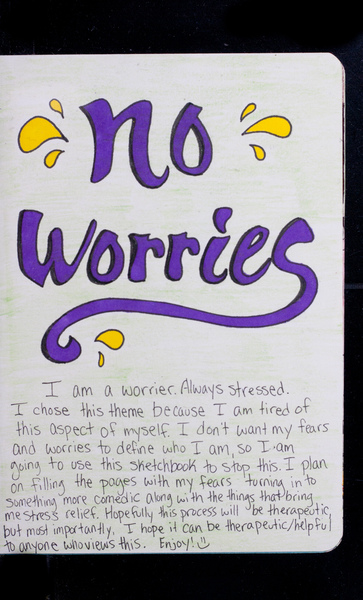 no
Worries
I am a worrier. Always stressed.
I chose this theme because I am tired of
this aspect of myself. I don't want my fears
and worries to define who I am, so I am
going to use this sketchbook to stop this. I plan
on filling the pages with my fears turning in to
something more comedic along with the things that bring
me stress relief. Hopefully this process will be therapeutic,
but most importantly, I hope it can be therapeutic/helpful
to anyone who views this. Enjoy! :)